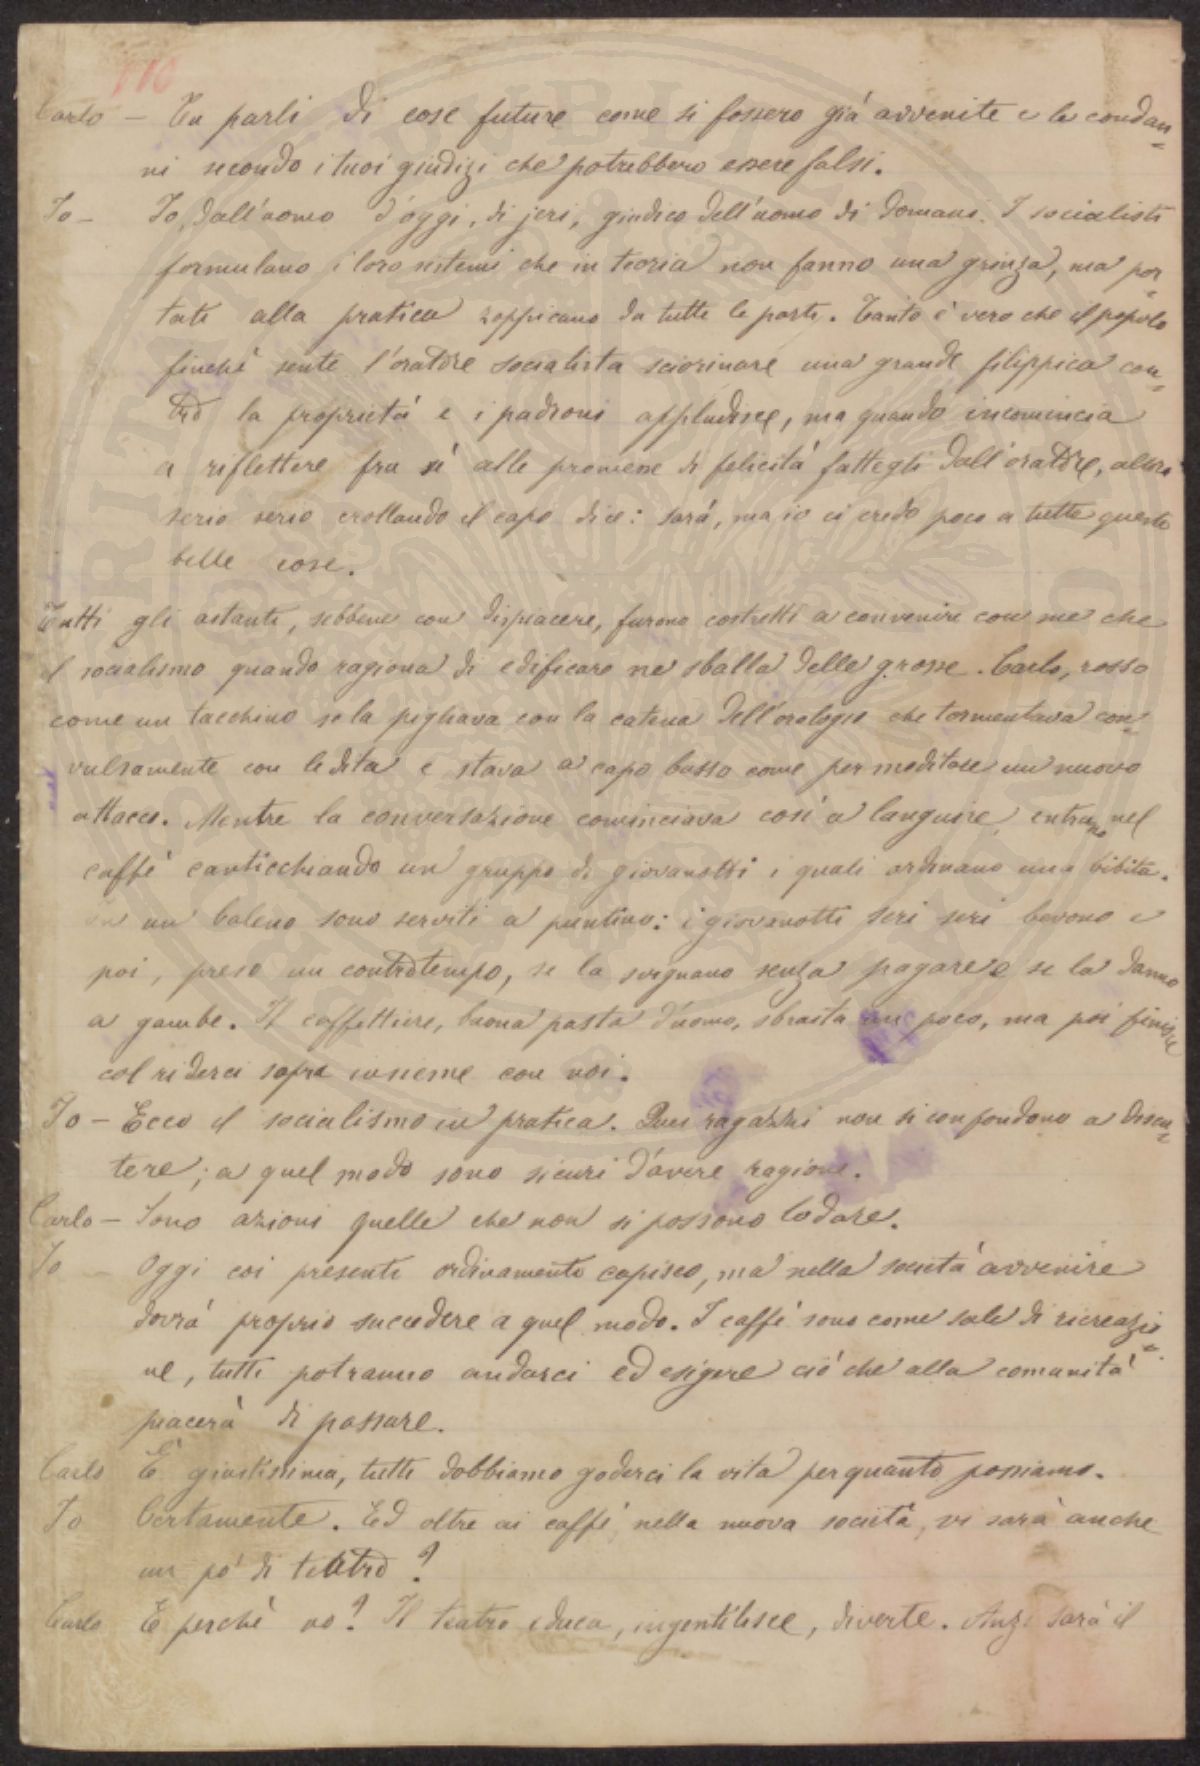 110
Carlo — Tu parli di cose future come si fossero già avvenite e le condan=
ni secondo i tuoi giudizi che potrebbero essere falsi.
Io — Io, dall'uomo d'oggi, di jeri, giudico dell'uomo di domani. I socialisti
formulano i loro sistemi che in teoria non fanno una grinza, ma por=
tati alla pratica zoppicano da tutte le parti. Tanto è vero che il popolo
finchè sente l'oratore socialista sciorinare una grande filippica con=
tro la proprietà e i padroni appludisce, ma quando incomincia
a riflettere fra sè alle promesse di felicità fattegli dall'oratore, allora
serio serio crollando il capo dice: sarà, ma io ci credo poco a tutte queste
belle cose.
Tutti gli astanti, sebbene con dispiacere, furono costretti a convenire con me che
il socialismo quando ragiona di edificare ne sballa delle grosse. Carlo, rosso
come un tacchino se la pigliava con la catena dell'orologio che tormentava con=
vulsamente con le dita e stava a capo basso come per meditare un nuovo
attacco. Mentre la conversazione cominciava così a languire, entrano nel
caffè canticchiando un gruppo di giovanotti i quali ordinano una bibita.
in un baleno sono serviti a puntino: i giovanotti seri seri bevono e
poi, preso un contrattempo, se la svignano senza pagare e se la danno
a gambe. Il caffettiere, buona pasta d'uomo, sbraita un poco, ma poi finisce
col riderci sopra insieme con noi.
Io — Ecco il socialismo in pratica. Quei ragazzi non si confondono a discu=
tere; a quel modo sono sicuri d'avere ragione.
Carlo — Sono azioni quelle che non si possono lodare.
Io Oggi coi presenti ordinamenti capisco, ma nella società avvenire
dovrà proprio succedere a quel modo. I caffè sono come sale di ricreazio=
ne, tutti potranno andarci ed esigere ciò che alla comunità
piacerà di passare.
Carlo È giustissima, tutti dobbiamo goderci la vita per quanto possiamo.
Io Certamente. Ed oltre ai caffè, nella nuova società, vi sarà anche
un pò di teatro?
Carlo E perchè no? Il teatro educa, ingentilisce, diverte. Anzi sarà il